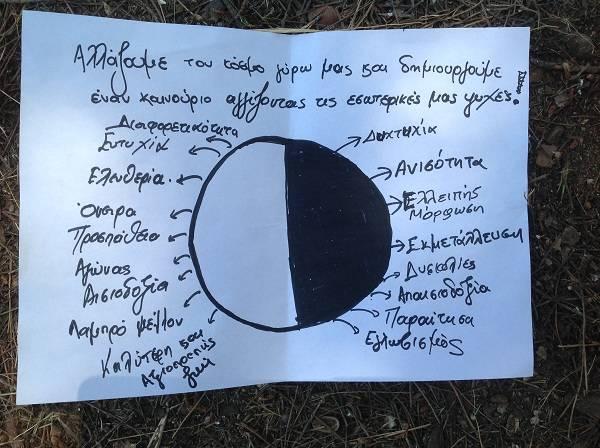 Αλλάζουμε τον κόσμο γύρω μας και δημιουργούμε
έναν καινούριο αγγίζοντας τις εσωτερικές μας ψυχές.
Διαφορετικότητα
Ευτυχία
Ελευθερία.
Όνειρα
Προσπάθεια
Αγώνας
Αισιοδοξία
Λαμπρό μέλλον
Καλύτερη και
Αξιοπρεπής
ζωή
Δυστυχία
Ανισότητα
Ελλειπής
Μόρφωση
Εκμετάλλευση
Δυσκολίες
Απαισιοδοξία
Παραίτηση
Εγωισμός